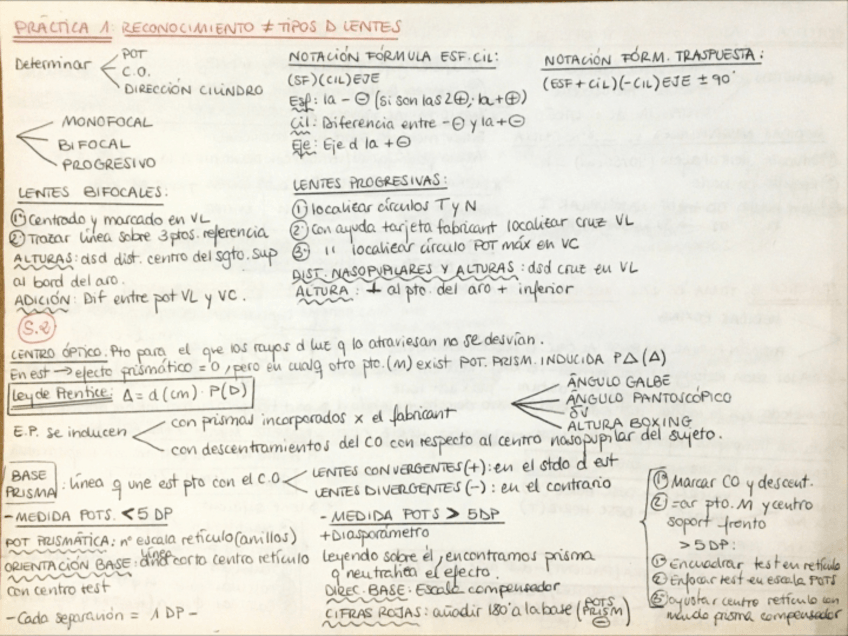 PRÁCTICA 1: RECONOCIMIENTO ≠ TIPOS D LENTES
Determinar
POT
C.O.
DIRECCIÓN CILINDRO
MONOFOCAL
BIFOCAL
PROGRESIVO
NOTACIÓN FÓRMULA ESF. CIL:
(SF)(CIL)EJE
Esf: la - ⊖ (si son las 2⊕, la + ⊕)
Cil: Diferencia entre -⊖ y la +⊖
Eje: Eje d la +⊖
NOTACIÓN FÓRM. TRASPUESTA:
(ESF + CIL)(-CIL) EJE ± 90°
LENTES BIFOCALES:
① Centrado y marcado en VL
② Trazar línea sobre 3 ptos. referencia
ALTURAS: dsd dist. centro del sgto. sup
al bord del aro.
ADICIÓN: Dif entre pot VL y VC.
LENTES PROGRESIVAS:
① localizar círculos T y N
② Con ayuda tarjeta fabricant localizar cruz VL
③ " localizar círculo POT máx en VC
DIST. NASOPUPILARES Y ALTURAS: dsd cruz en VL
ALTURA: ⊥ al pto. del aro + inferior
S.2
CENTRO ÓPTICO. Pto para el que los rayos d luz q la atraviesan no se desvían.
En est → efecto prismático = 0, pero en cualq otro pto. (M) exist POT. PRISM. INDUCIDA P△ (△)
Ley de Prentice: △ = d (cm) · P(D)
E.P. se inducen
con prismas incorporados x el fabricant
con descentramientos del CO con respecto al centro nasopupilar del sujeto.
ÁNGULO GALBE
ÁNGULO PANTOSCÓPICO
DV
ALTURA BOXING
BASE PRISMA: línea q une est pto con el C.O
LENTES CONVERGENTES (+): en el stdo d est
LENTES DIVERGENTES (-): en el contrario
- MEDIDA POTS. < 5 DP
POT PRISMÁTICA: nº escala retículo (anillos)
ORIENTACIÓN BASE: línea corta centro retículo
con centro test
- Cada separación = 1 DP -
- MEDIDA POTS > 5DP
+ Diasporámetro
leyendo sobre él, encontramos prisma
q neutraliza el efecto.
DIREC. BASE: Escala compensador
CIFRAS ROJAS: añadir 180° a la base (POTS PRISM ⊖)
① Marcar CO y descent.
② =ar pto. M y centro
soport frento
> 5 DP:
① Encuadrar test en retículo
② Enfocar test en escala POTS
③ ajustar centro retículo con
mando prisma compensador